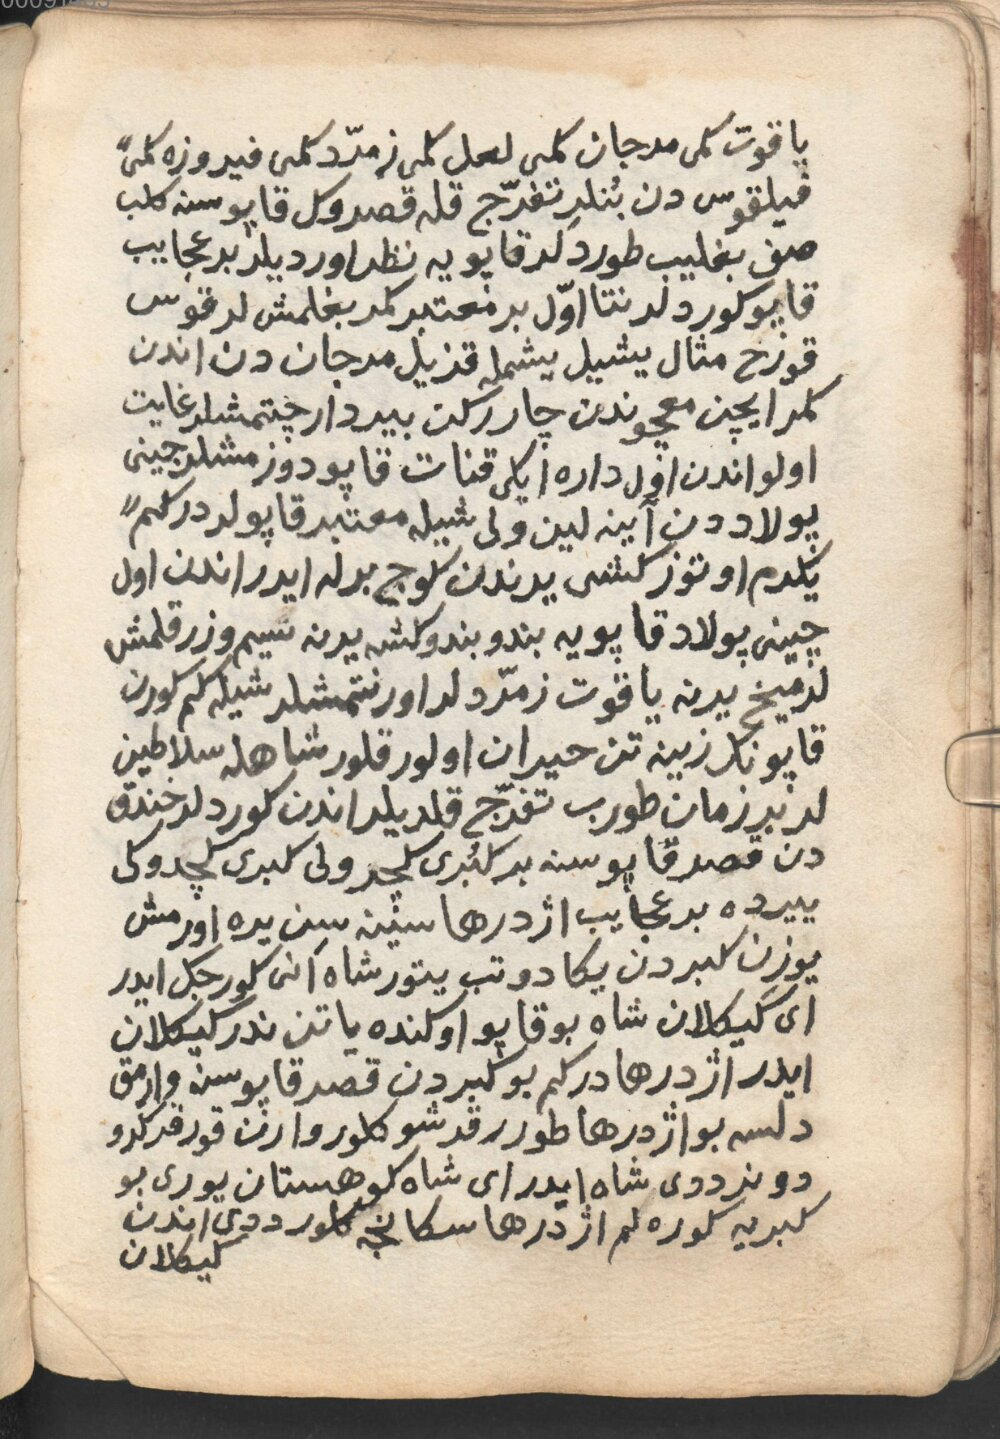 یاقوت كمی مرجان كمی لعل كمی زمرّد كمی فیروزه كمی
فیلقوس دن بُنلر تفرّج قله قصروكل قاپوسنه كلب
صف بغلیب طوردلر قاپویه نظر اوردیلر بر عجایب
قاپو كوردلر نتا اوّل بر معتبر كمر بغلمش لر قوس
قوزح مثال یشیل یشمله قزیل مرجان دن اندن
كمر ایچن معچوندن چار ركن بیر دار چتمشلر غایت
اولو اندن اول داره ایكی قنات قاپو دوزمشلر چینی
پولاد دن آیینه لین ولی شیله معتبر قاپولر دركم
یكرم اوتوز كشی یرندن كوج برله ایدر اندن اول
چینی پولاد قاپویه بندو بندوكشه یرنه سیم و زر قلمش
لر میخ یرنه یاقوت زمرّد لر اورنتمشلر شیله كم كورن
قاپونك زینه تن حیران اولور قلور شاهله سلاطین
لر بر زمان طورب تفرّج قلدیلر اندن كوردلر خندق
دن قصر قاپوسنه بر كبری كچر ولی كبری كچدوكی
ییرده بر عجایب اژدرها سینه سن یره اورمش
یوزن كبردن یكا دوتب یتور شاه آنی كورجك ایدر
ای گیكلان شاه بو قاپو اوكنده یاتن ندر گیكلان
ایدر اژدرها دركم بو كبردن قصر قاپوسنه وارمق
دلسه بو اژدرها طورر قرشو كلور وارن قورقر كرو
دونر ددی شاه ایدر ای شاه كوهستان یوری بو
كبریه كوره لم اژدرها سكا نجه كلور ددی اندن
گیكلان